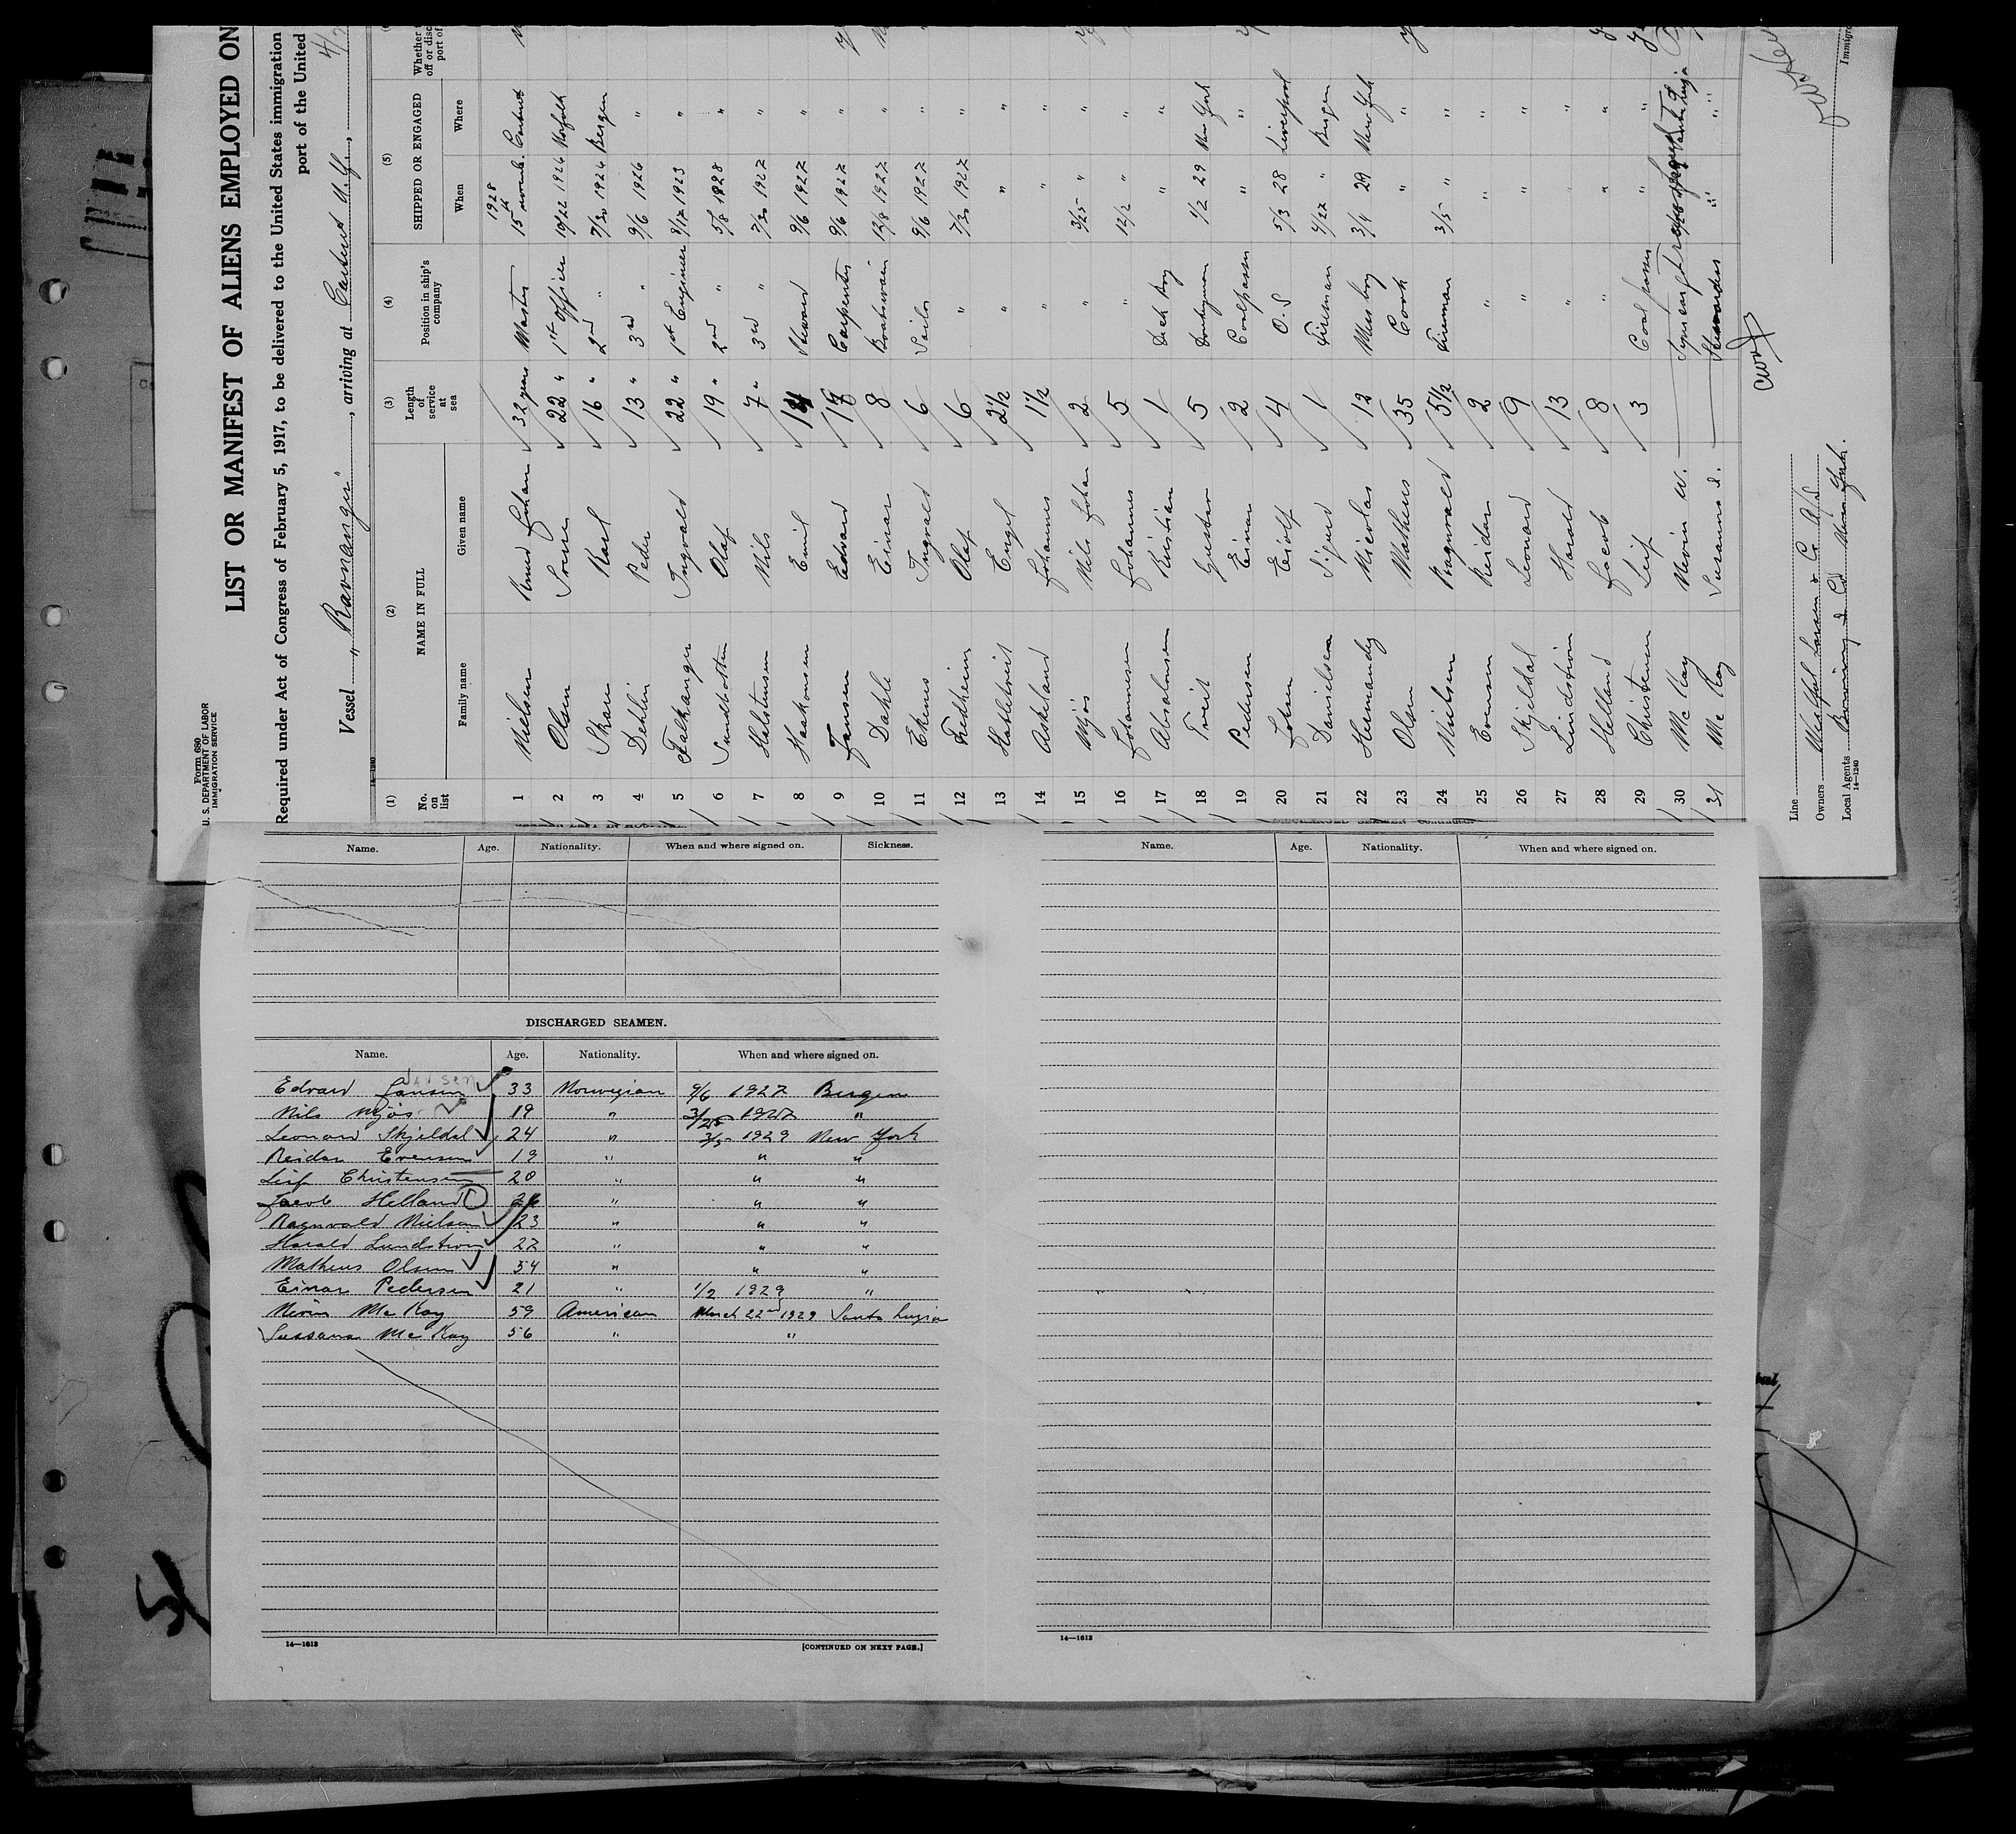 Form 680
U. S. DEPARTMENT OF LABOR
IMMIGRATION SERVICE
LIST OR MANIFEST OF ALIENS EMPLOYED ON
Required under Act of Congress of February 5, 1917, to be delivered to the United States immigration
port of the United
Vessel "Ravnanger", arriving at Carteret N.Y.,
(1) (2) (3) (4) (5)
No. on list NAME IN FULL Length of service at sea Position in ship's company SHIPPED OR ENGAGED Whether
off or disc
port of
Family name Given name When Where
1928
1 Nielsen Knud Johan 32 years Master 15 novemb. Carteret
2 Olsen 22 " 1st Officer 10/22 1926 Norfolk
3 Skare Karl 16 " 2nd " 7/20 1926 Bergen
4 Dehlin Peder 13 " 3rd " 9/6 1926 "
5 Falkanger Ingvald 22 " 1st Engineer 8/17 1923 "
6 Sundbotten Olaf 19 " 2nd " 5/8 1928 "
7 Halstensen Nils 7 " 3rd " 7/20 1927 "
8 Haakonsen Emil 14 Steward 9/6 1927 "
9 Jansen Edvard 18 Carpenter 9/6 1927 "
10 Dahle Einar 8 Boatswain 12/8 1927 "
11 Ekens Ingvald 6 Sailor 9/6 1927 "
12 Fadheim Olaf 6 " 7/20 1927 "
13 Hatletveit Engel 2 1/2 " " "
14 Askeland Johannes 1 1/2 " " "
15 Mjös Nils Johan 2 " 3/25 " "
16 Johannesen Johannes 5 " 12/2 " "
17 Absalonsen Kristian 1 Deck Boy " "
18 Tveit Gustav 5 Donkeyman 1/2 29 New York
19 Pedersen Einar 2 Coalpasser " "
20 Eidolf 4 O.S 5/3 28 Liverpool
21 Danielsen Sigurd 1 Fireman 4/27 " Bergen
22 Hernandez Nicolas 12 Mess boy 3/4 29 New York
23 Olsen Matheus 35 Cook " "
24 Nielsen Ragnvald 5 1/2 Fireman 3/5 " "
25 Evensen Reidar 2 " " "
26 Skjeldal Leonard 9 " " "
27 Lindström Harald 13 " " "
28 Helland Jacob 8 " " "
29 Christensen Leif 3 Coal passer " "
30 Mc Kay Nevin W.
31 Mc Kay Susanna J. Stewardes " "
Line
Owners Westfal Larsen & Co A/S
Local Agents
14—1240
Immigra
Name. Age. Nationality. When and where signed on. Sickness.
DISCHARGED SEAMEN.
Name. Age. Nationality. When and where signed on.
Edvard Jansen 33 Norwegian 9/6 1927 Bergen
Nils Mjös 19 " 3/25 1927 "
Leonard Skjeldal 24 " 3/5 1929 New York
Reidar Evensen 19 " " "
Leif Christensen 20 " " "
Jacob Helland 26 " " "
Ragnvald Nielsen 23 " " "
Harald Lundström 27 " " "
Matheus Olsen 54 " " "
Einar Pedersen 21 " 1/2 1929 "
Nevin Mc Kay 59 American March 22nd 1929 Santa Luzia
Sussana Mc Kay 56 " "
14—1613
[CONTINUED ON NEXT PAGE.]
Name. Age. Nationality. When and where signed on.
14—1613